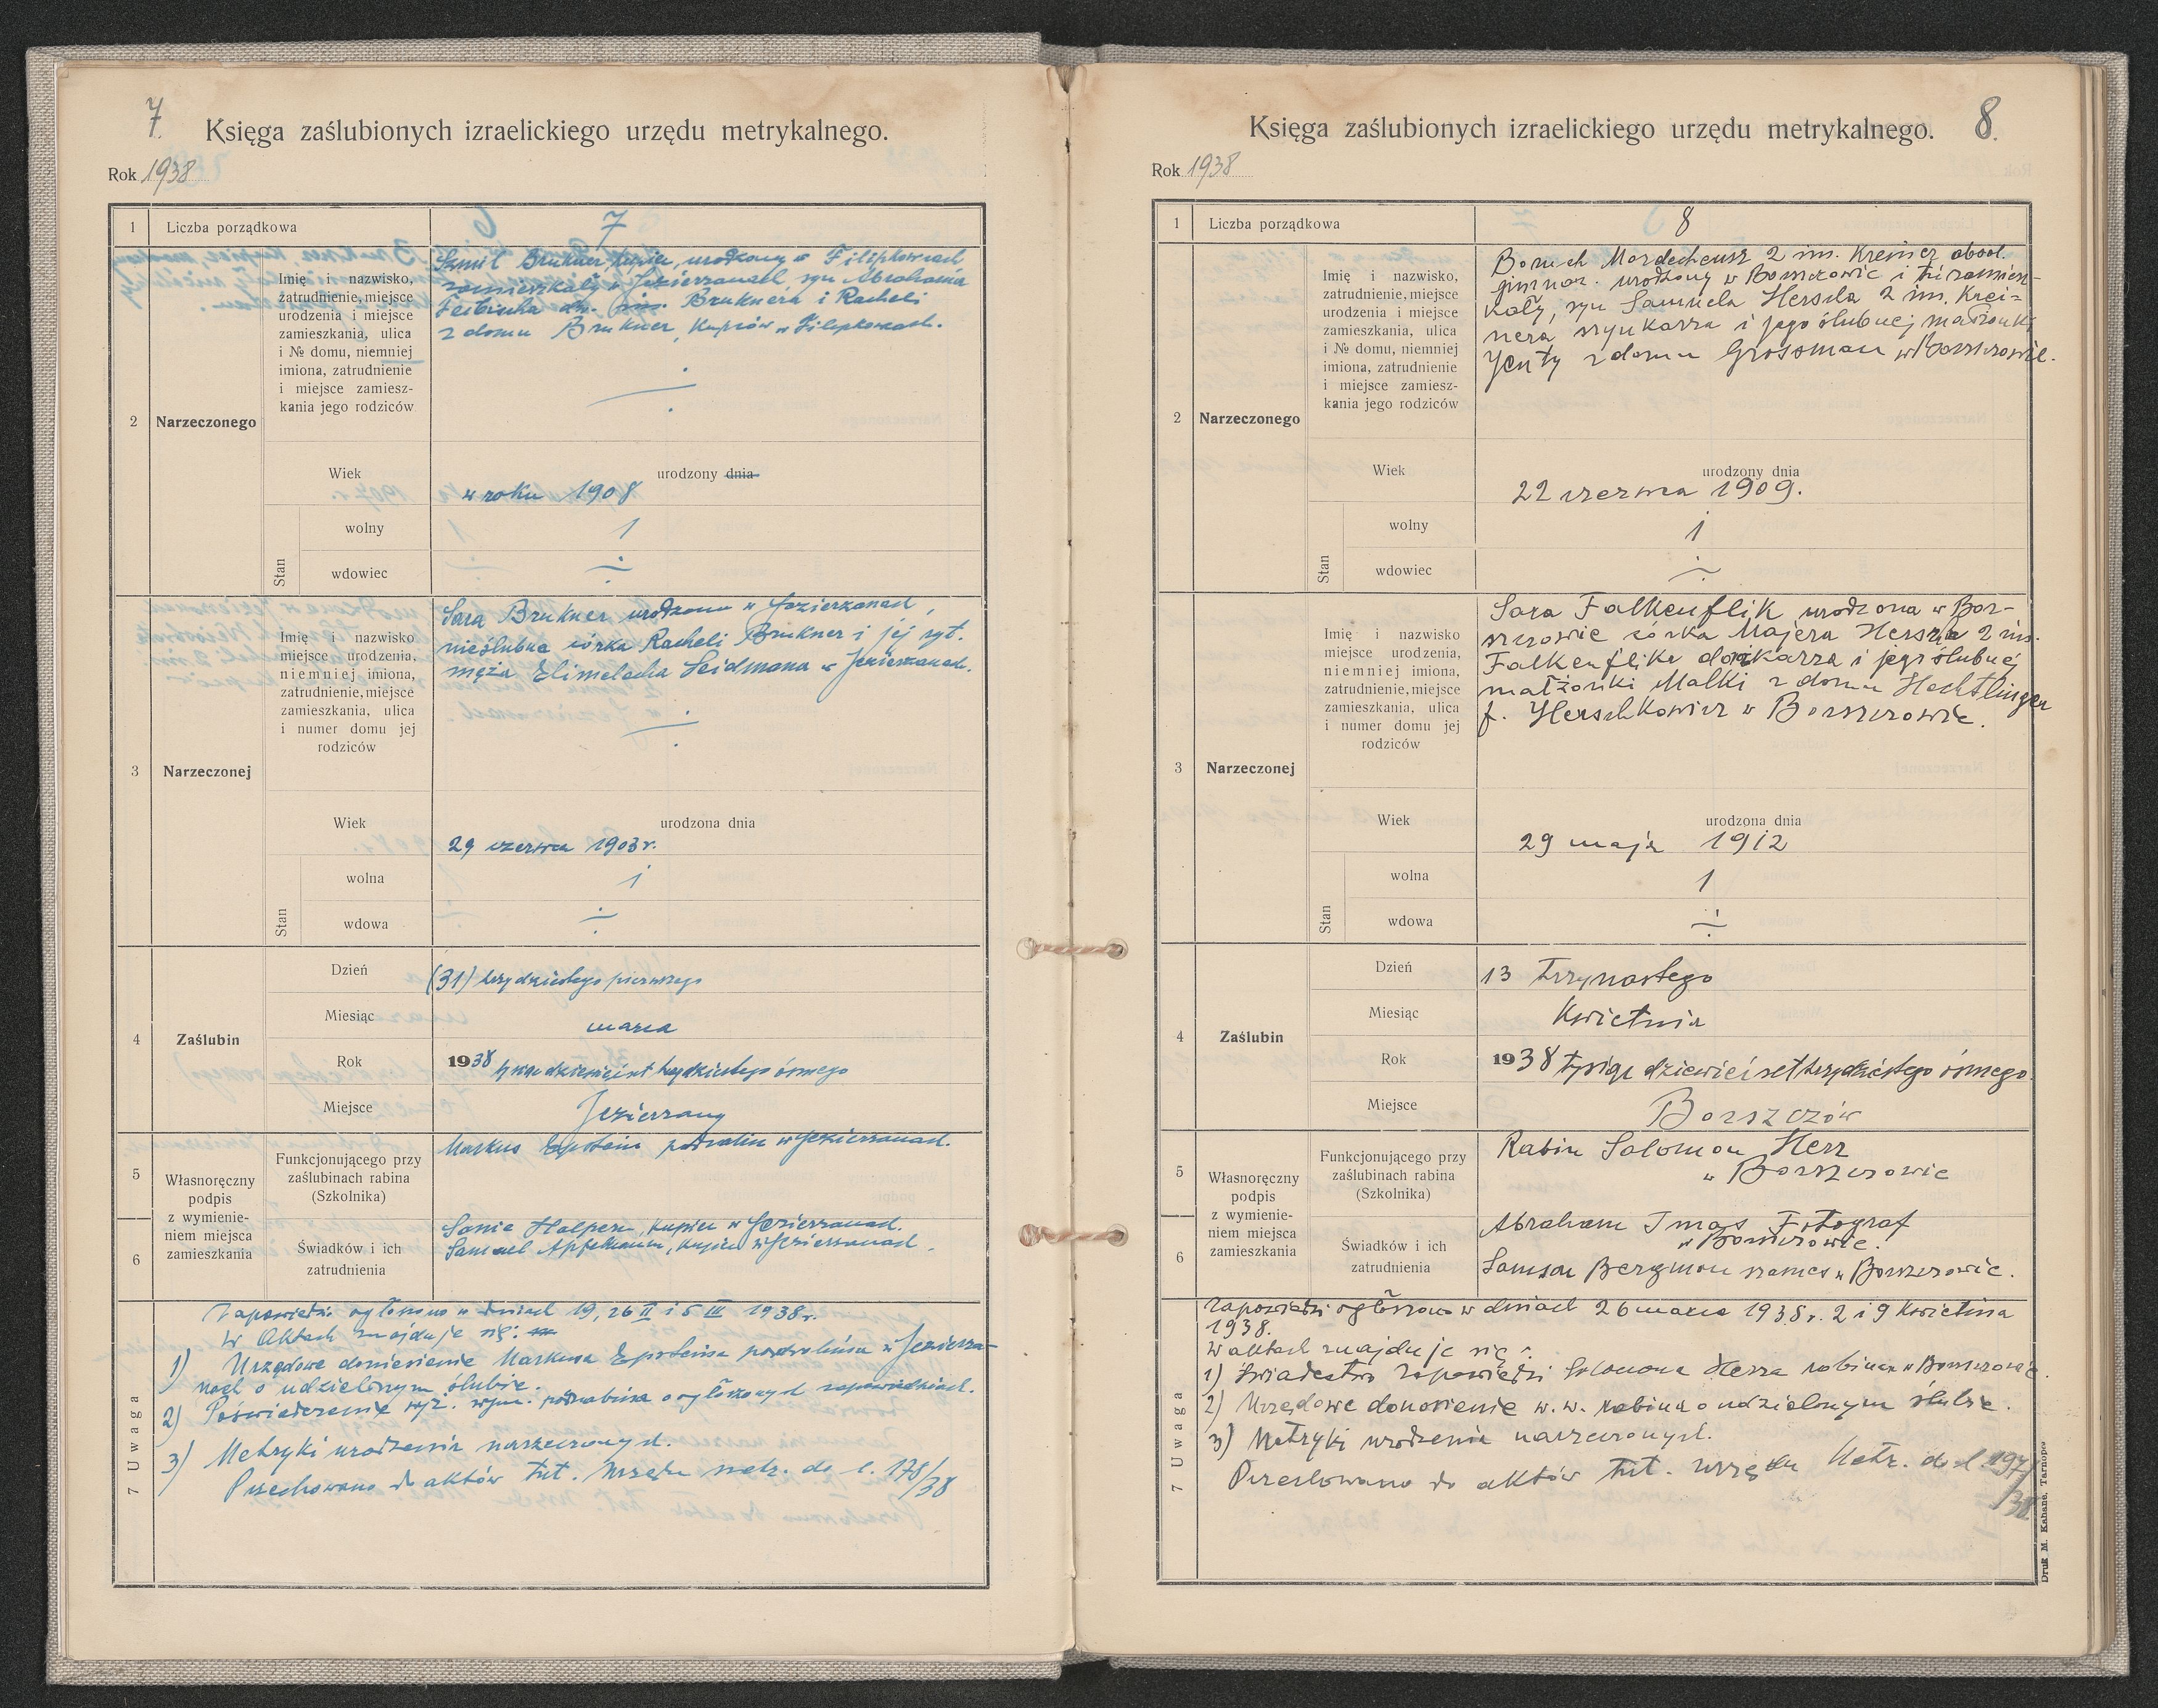 7.
Księga zaślubionych izraelickiego urzędu metrykalnego.
Rok 1938
1 Liczba porządkowa 7
2 Narzeczonego
Imię i nazwisko,
zatrudnienie, miejsce
urodzenia i miejsce
zamieszkania, ulica
i № domu, niemniej
imiona, zatrudnienie
i miejsce zamiesz-
kania jego rodziców
Brukner, kupiec, urodzony w Filipkowcach
zamieszkały w Jezierzanach syn Abrahama
Bruknera i Racheli
z domu Brukner, Kupców w Filipkowcach.
Wiek urodzony dnia
w roku 1908
Stan
wolny 1
wdowiec ÷
3 Narzeczonej
Imię i nazwisko
miejsce urodzenia,
niemniej imiona,
zatrudnienie, miejsce
zamieszkania, ulica
i numer domu jej
rodziców
Sara Brukner urodzona w Jezierzanach,
nieślubna córka Racheli Brukner i jej ryt.
męża Elimelecha Seidmana w Jezierzanach.
Wiek urodzona dnia
29 czerwca 1903 r.
Stan
wolna 1
wdowa ÷
4 Zaślubin
Dzień (31) trzydziestego pierwszego
Miesiąc marca
Rok 1938 tysiąc dziewięćset trzydziestego ósmego
Miejsce Jezierzany
5 6 Własnoręczny
podpis
z wymienie-
niem miejsca
zamieszkania
Funkcjonującego przy
zaślubinach rabina
(Szkolnika)
Markus Epstein podrabin w Jezierzanach.
Świadków i ich
zatrudnienia
Halpern, kupiec w Jezierzanach.
Samuel Apfelbaum, kupiec w Jezierzanach.
7 Uwaga
Zapowiedzi ogłoszono w dniach 19, 26 II i 5 III 1938 r.
W Aktach znajduje się:
1) Urzędowe doniesienie Markusa Epsteina podrabina w Jezierza-
nach o udzielonym ślubie.
2) Poświadczenie wyż. wym. podrabina o ogłoszonych zapowiedziach.
3) Metryki urodzenia narzeczonych.
Przechowano do aktów tut. Urzędu metr. do l. 178/38
8.
Księga zaślubionych izraelickiego urzędu metrykalnego.
Rok 1938
1 Liczba porządkowa 8
2 Narzeczonego
Imię i nazwisko,
zatrudnienie, miejsce
urodzenia i miejsce
zamieszkania, ulica
i № domu, niemniej
imiona, zatrudnienie
i miejsce zamiesz-
kania jego rodziców
Boruch Mordecheusz 2 im. Kreiner absol.
gimnaz. urodzony w Borszczowie i tu zamiesz-
kały, syn Samuela Herscha 2 im. Krei=
nera szynkarza i jego ślubnej małżonki
Jenty z domu Grossman w Borszczowie.
Wiek urodzony dnia
22 czerwca 1909.
Stan
wolny 1
wdowiec ÷
3 Narzeczonej
Imię i nazwisko
miejsce urodzenia,
niemniej imiona,
zatrudnienie, miejsce
zamieszkania, ulica
i numer domu jej
rodziców
Sara Falkenflik urodzona w Bor-
szczowie córka Majera Herscha 2 im.
Falkenflika i jego ślubnej
małżonki Malki z domu Hechtlinger
f. Herschkowicz w Borszczowie.
Wiek urodzona dnia
29 maja 1912
Stan
wolna 1
wdowa ÷
4 Zaślubin
Dzień 13 trzynastego
Miesiąc Kwietnia
Rok 1938 tysiąc dziewięćset trzydziestego ósmego
Miejsce Borszczów
5 6 Własnoręczny
podpis
z wymienie-
niem miejsca
zamieszkania
Funkcjonującego przy
zaślubinach rabina
(Szkolnika)
Rabin Salomon Herz
w Borszczowie
Świadków i ich
zatrudnienia
Abraham Imas Fotograf
w Borszczowie.
Samson Bergman szames w Borszczowie.
7 Uwaga
Zapowiedzi ogłoszono w dniach 26 marca 1938 r. 2 i 9 Kwietnia
1938.
W aktach znajduje się:
1) Świadectwo zapowiedzi Salomona Herza rabina w Borszczowie.
2) Urzędowe doniesienie w. w. rabina o udzielonym ślubie.
3) Metryki urodzenia narzeczonych.
Przechowano do aktów tut. urzędu Metr. do l. 197/
38
Druk M. Kahane, Tarnopol